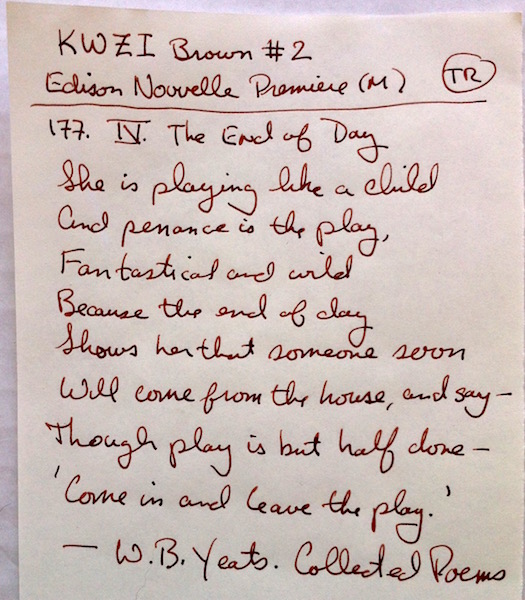 KWZI Brown #2
Edison Nouvelle Premiere (M) TR
177. IV. The End of Day
She is playing like a child
And penance is the play,
Fantastical and wild
Because the end of day
Shows her that someone soon
Will come from the house, and say—
Though play is but half done—
'Come in and leave the play.'
— W.B. Yeats. Collected Poems